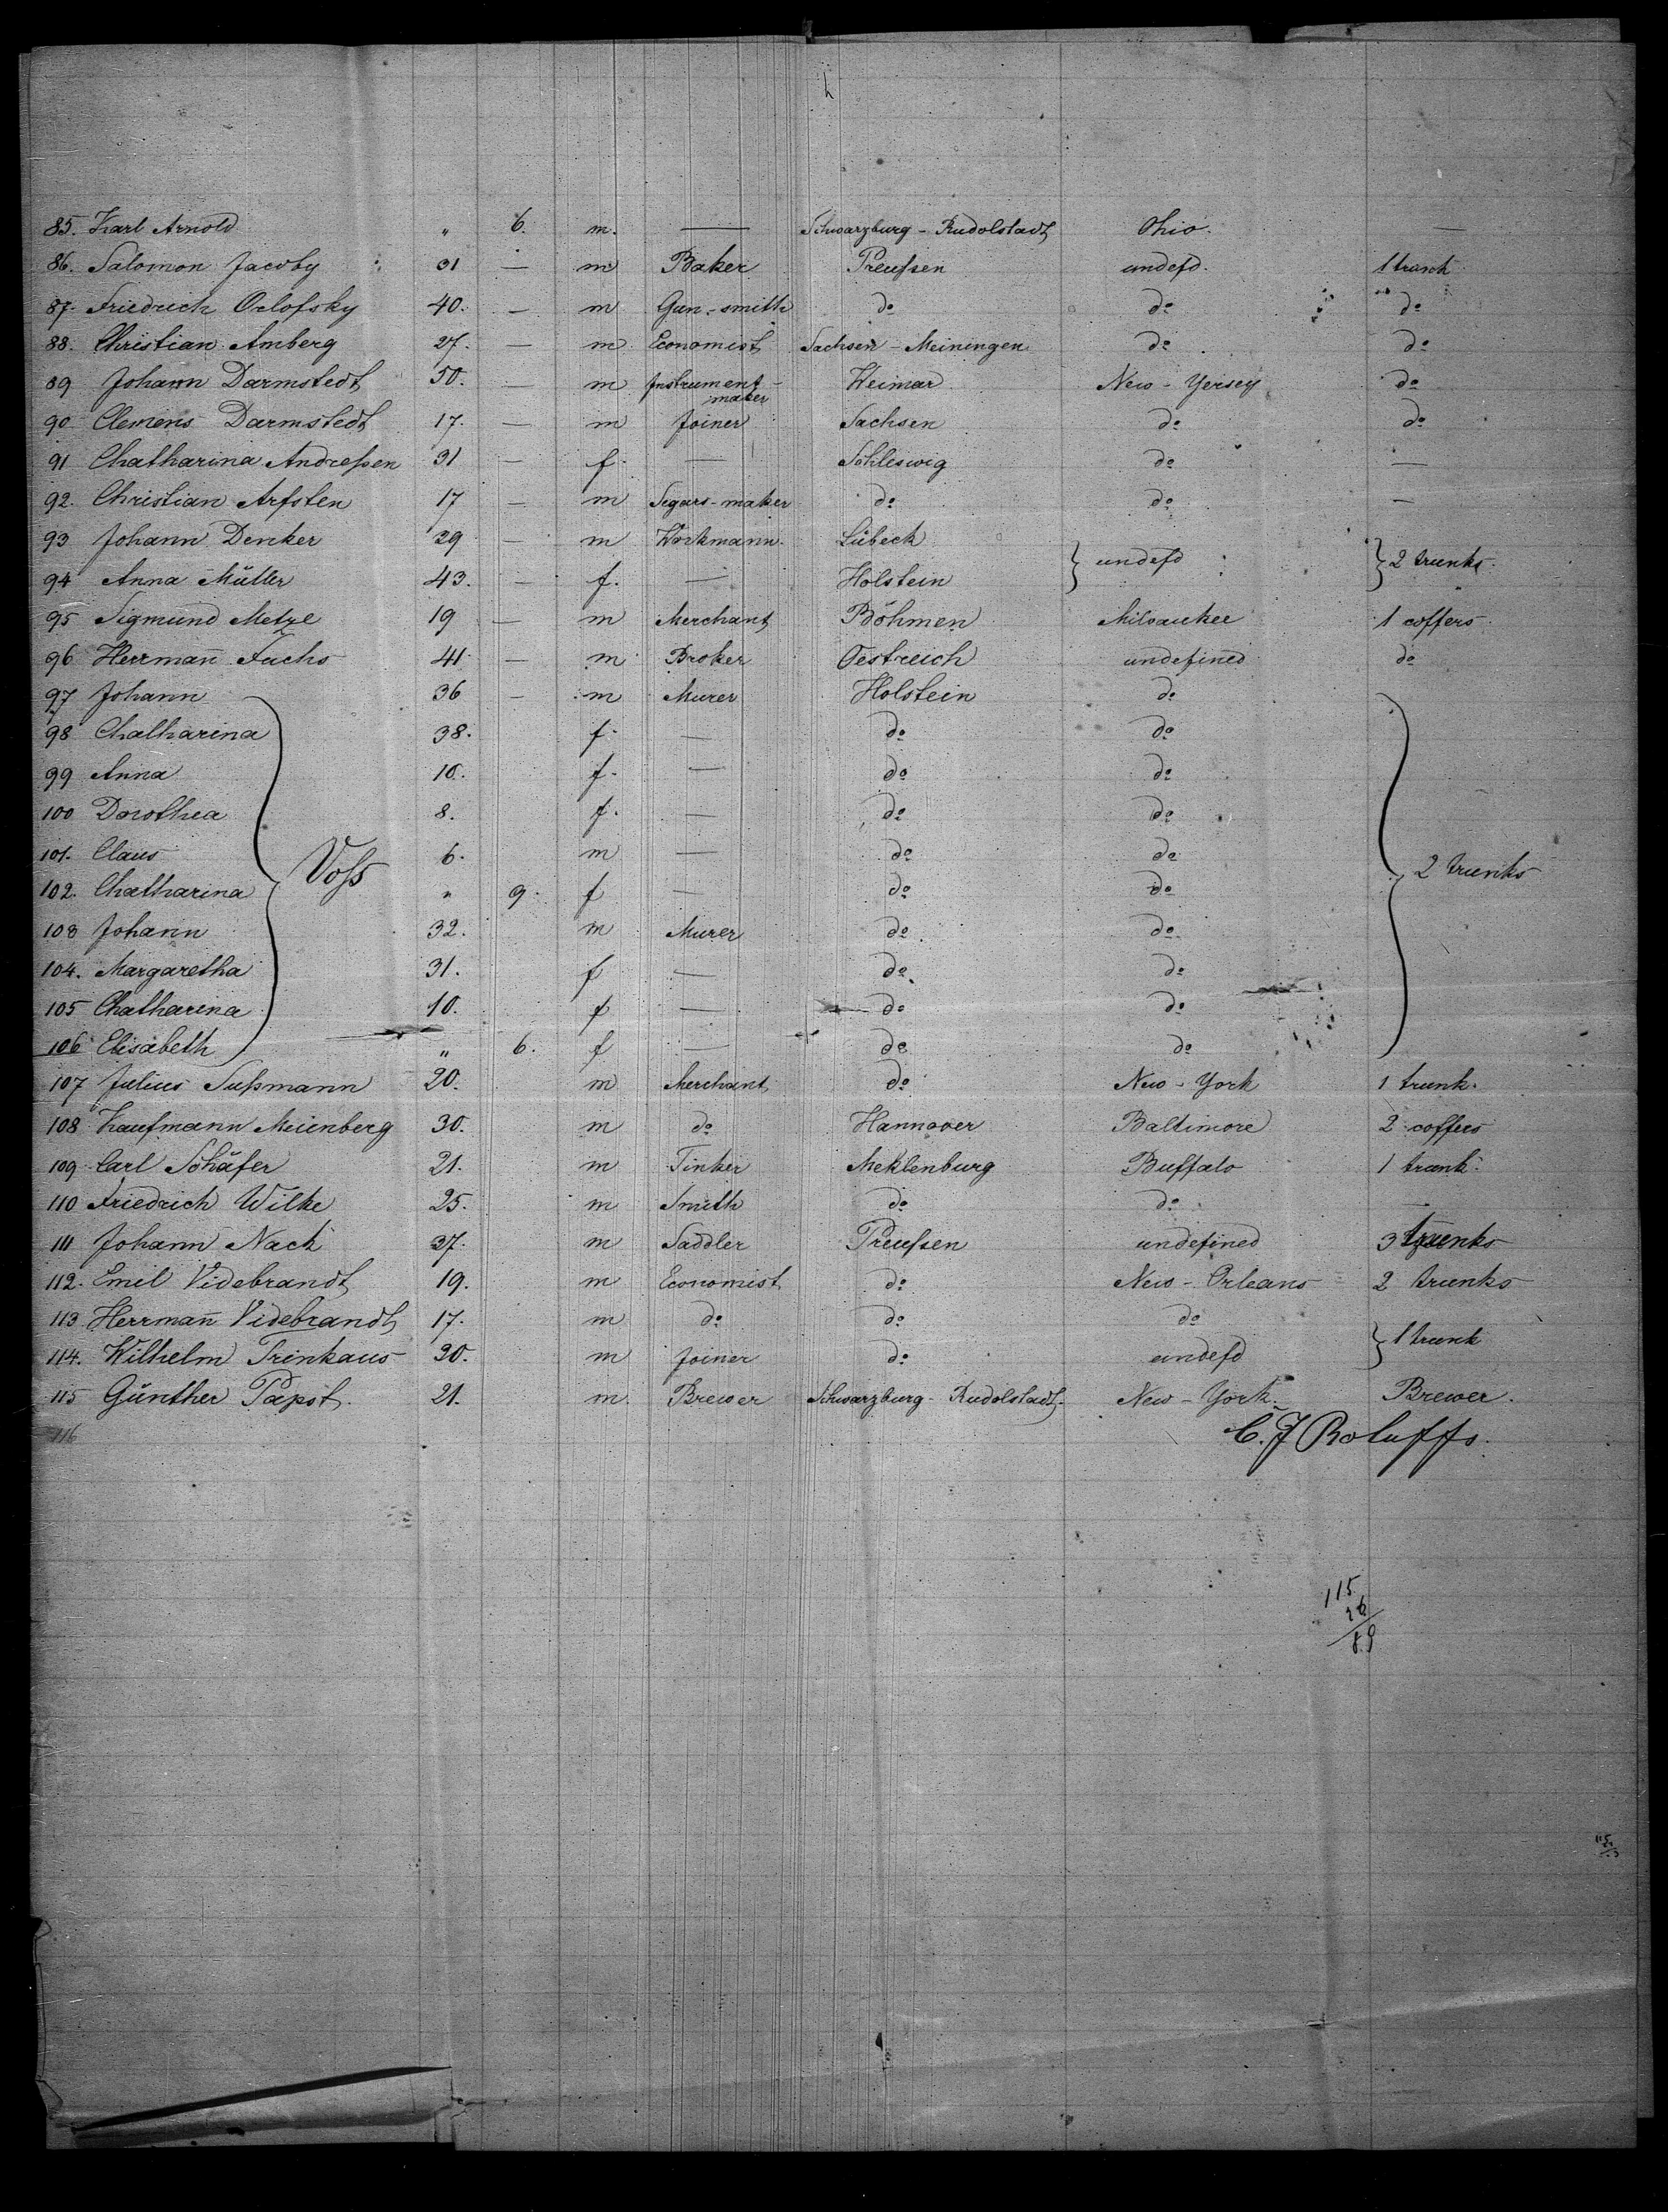 85. Karl Arnold " 6. m. — Schwarzburg - Rudolstadt Ohio. —
86. Salomon Jacoby 31 — m Baker Preußen undefd. 1 trunk
87. Friedrich Orlofsky 40. — m Gun-smith do do do
88. Christian Amberg 27. — m Economist Sachsen - Meiningen do do
89 Johann Darmstedt 50. — m Instrument-maker Weimar New-Yersey do
90 Clemens Darmstedt 17. — m Joiner Sachsen do do
91 Chatharina Andreßen 31 — f. — Schleswig do —
92. Christian Arfsten 17 — m Segars-maker do do —
93 Johann Denker 29 — m Workmann. Lübeck } undefd } 2 trunks.
94 Anna Müller 43. — f. — Holstein
95 Sigmund Metze 19 — m Merchant Böhmen Milwaukee 1 coffers
96 Herrmañ Fuchs 41 — m Broker Oestreich undefined do
97 Johann 36 — m Murer Holstein do
98 Chatharina 38. f. — do do
99 Anna 10. f. — do do
100 Dorothea 8. f. — do do
101. Claus 6. m — do do
Voß 2 trunks
102. Chatharina " 9. f — do do
103 Johann 32. m Murer do do
104. Margaretha 31. f — do do
105 Chatharina 10. f — do do
106 Elisabeth " 6. f — do do
107 Julius Sußmann 20. m Merchant do New-York 1 trunk.
108 Kaufmann Meienberg 30. m do Hannover Baltimore 2 coffers
109 Carl Schäfer 21. m Tinker Meklenburg Buffalo 1 trunk.
110 Friedrich Wilke 25. m Smith do do —
111 Johann Nack 37. m Saddler Preußen undefined 3 trunks
112. Emil Videbrandt 19. m Economist do New-Orleans 2 trunks
113 Herrmañ Videbrandt 17. m do do do } 1 trunk
114. Wilhelm Trinkaus 20. m Joiner do undefd
115 Günther Papst. 21. m. Brewer Schwarzburg - Rudolstadt. New-York. Brewer.
116
C. J Roluffs.
115
26
89